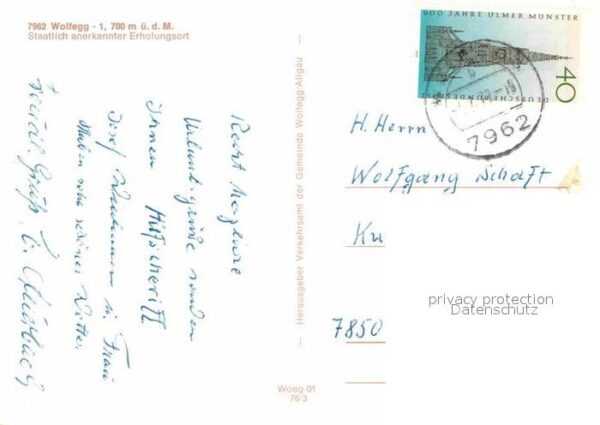 7962 Wolfegg - 1, 700 m ü. d. M.
Staatlich anerkannter Erholungsort
Recht herzliche
Urlaubsgrüße senden
Ihnen
Josef u. Frau
Haben sehr schönes Wetter.
Freundl. Grüße
Herausgeber Verkehrsamt der Gemeinde Wolfegg/Allgäu
Woeg 01
76/3
600 JAHRE ULMER MÜNSTER
DEUTSCHE BUNDESPOST
40
7962
H. Herrn
Wolfgang Schaft
Ku
7850
privacy protection
Datenschutz